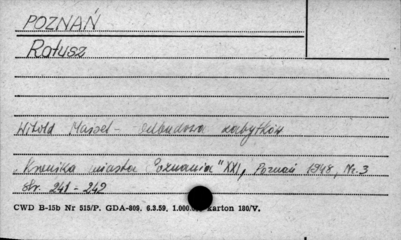 POZNAŃ
Ratusz
Witold Maisel - odbudowa zabytków
"Kronika miasta Poznania" XXI, Poznań 1948, Nr. 3
str. 241 - 242
CWD B-15b Nr 515/P. GDA-809. 6.3.59. 1.000. karton 180/V.